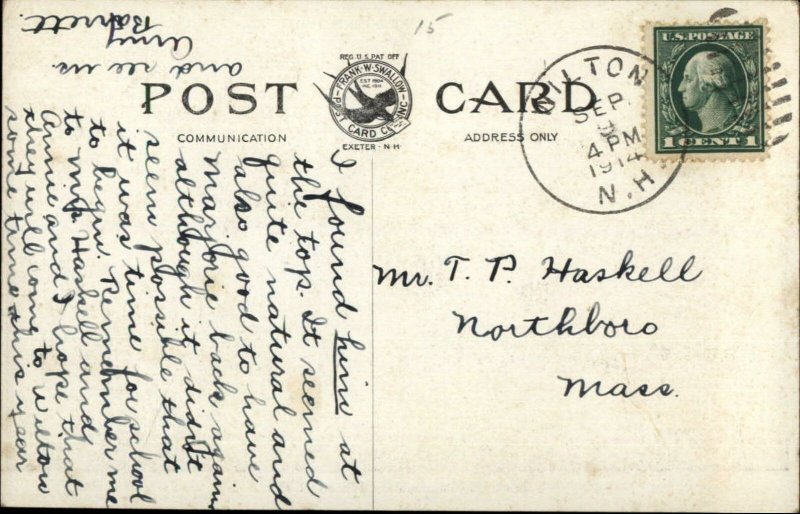 15
REG U.S. PAT OFF
FRANK·W·SWALLOW
EST 1904
INC 1911
POST CARD CO. INC
EXETER - N·H
POST CARD
COMMUNICATION
ADDRESS ONLY
WILTON
SEP.
4 PM
1914
N.H.
U.S. POSTAGE
1 CENT 1
Mr. T. P. Haskell
Northboro
Mass.
I found him at
the top. It seemed
quite natural and
also good to have
Marjorie back again
although it didn't
seem possible that
it was time for school
to begin. Remember me
to Mrs. Haskell and
Annie and I hope that
they will come to Wilton
some time this year
and see us.
Amy
Barrett.